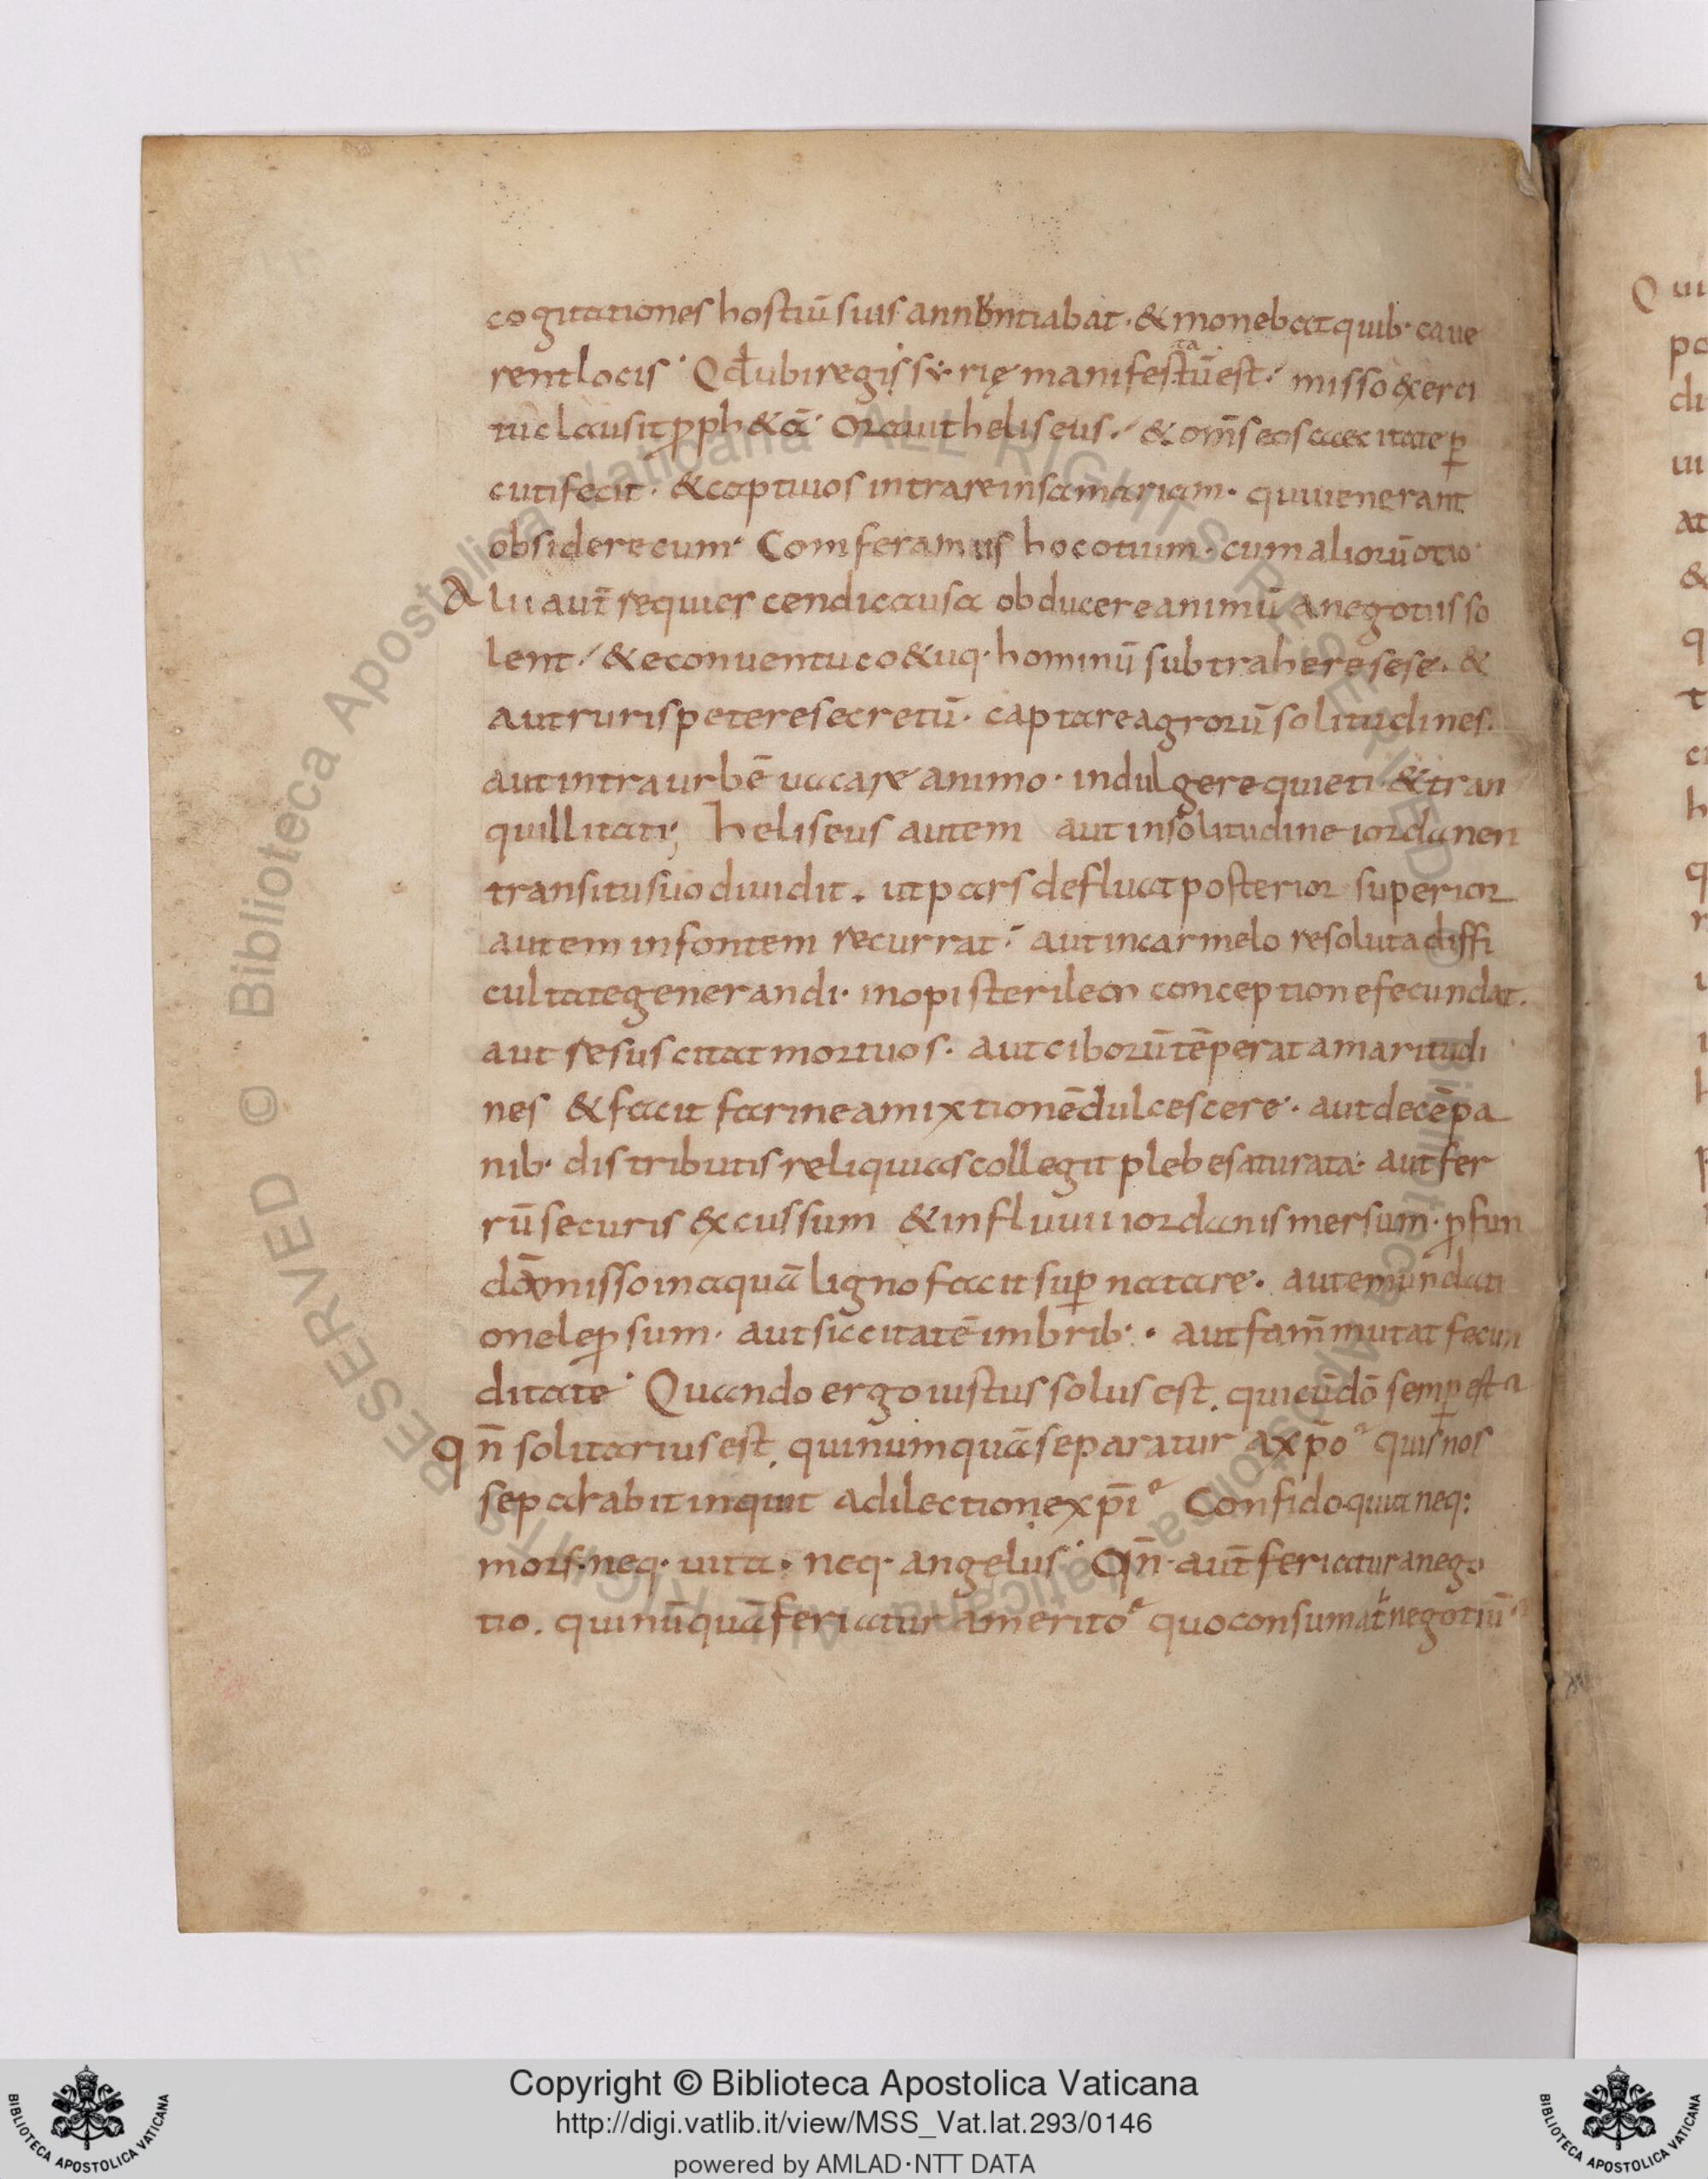 cogitationes hostiū suis annuntiabat · & monebat quib· caue
rent locis · Qđ ubi regi syrię manifestatū est · misso exerci
tu clausit ꝓph&ā · orauit heliseus · & om̄s eos caecitate ꝑ
cuti fecit · & captiuos intrare in samariam · qui uenerant
obsidere eum · Comferamus hoc otium · cum aliorū otio ·
Alii aut̄ requiescendi causa obducere animū a negotiis so
lent · & e conuentu co&uq· hominū subtrahere sese · &
aut ruris petere secretū · captare agrorū solitudines ·
aut intra urbē uacare animo · indulgere quieti · & tran
quillitati; heliseus autem aut in solitudine iordanen
transitu suo diuidit · ut pars defluat posterior superior
autem in fontem recurrat · aut in carmelo resoluta diffi
cultate generandi · inopi sterilem conceptione fecundat ·
aut resuscitat mortuos · aut ciborū tēperat amaritudi
nes & facit farine amixtionē dulcescere · aut decē pa
nib· distributis reliquias collegit plebe saturata · aut fer
rū securis excussum & in fluuii iordanis mersum · ꝓfun
dō misso in aquā ligno facit suꝑ natare · aut emundati
one leprosum · aut siccitatē imbrib· · aut fam̄ mutat fecun
ditate · Quando ergo iustus solus est · qui cū dō semꝑ est
Qn̄ solitarius est, qui numquā separatur a xp̄o quis nos
separabit inquit a dilectione xp̄i Confido quia neq:
mors · neq· uita · neq· angelus · Qn̄ · aut̄ feriatur a nego
tio · qui nūquā feriatur a merito quo consumat̄ negotiū
Copyright © Biblioteca Apostolica Vaticana
http://digi.vatlib.it/view/MSS_Vat.lat.293/0146
powered by AMLAD·NTT DATA